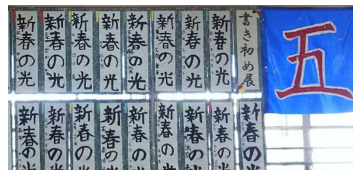 五
書き初め展
新春の光
新春の光
新春の光
新春の光
新春の光
新春の光
新春の光
新春の光
新春の
新春の光
新春の光
新春の光
新春の光
新春の光
新春の光
新春の光
新春の光